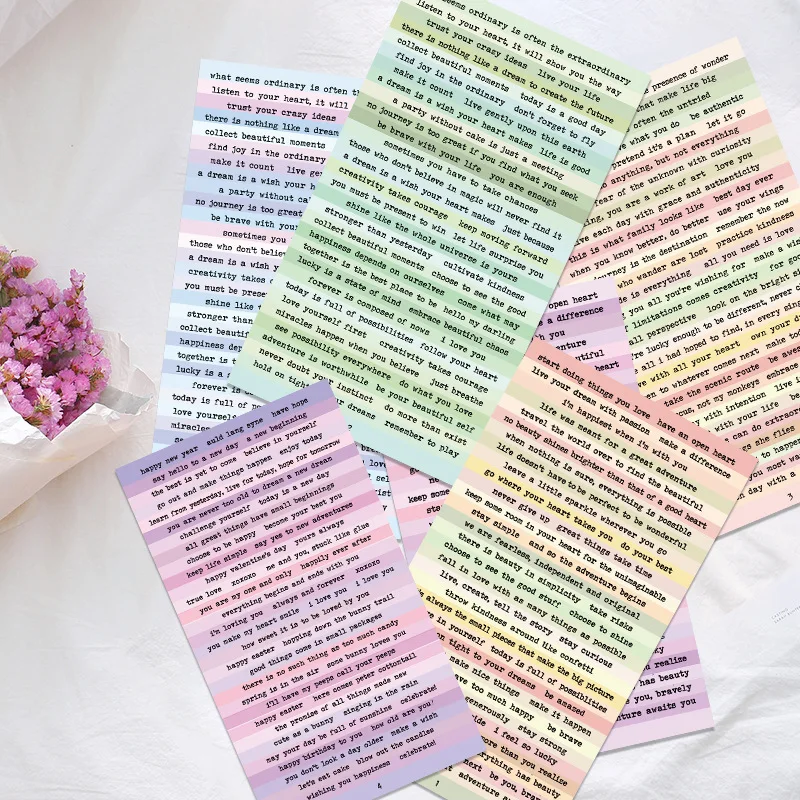 what seems ordinary is often th
listen to your heart, it will
trust your crazy ideas
there is nothing like a dream
collect beautiful moments
find joy in the ordinary
make it count live gen
a dream is a wish your h
a party without ca
no journey is too great
be brave with your
sometimes you
those who don't belie
a dream is a wish y
creativity takes c
you must be prese
shine like
stronger than
collect beautif
happiness dep
together is t
lucky is a s
forever is
today is full of
love yourself
miracles
never
seems ordinary is often the extraordinary
listen to your heart, it will show you the way
trust your crazy ideas live your life
there is nothing like a dream to create the future
collect beautiful moments today is a good day
find joy in the ordinary don't forget to fly
make it count live gently upon this earth
a dream is a wish your heart makes life is good
a party without cake is just a meeting
no journey is too great if you find what you seek
be brave with your life you are enough
sometimes you have to take chances
those who don't believe in magic will never find it
a dream is a wish your heart makes just because
creativity takes courage keep moving forward
you must be present to win let life surprise you
shine like the whole universe is yours
stronger than yesterday cultivate kindness
collect beautiful moments choose to see the good
happiness depends on ourselves come what may
together is the best place to be hello my darling
lucky is a state of mind embrace beautiful chaos
forever is composed of nows i love you
today is full of possibilities follow your heart
love yourself first creativity takes courage
miracles happen when you believe just breathe
see possibility everywhere do what you love
adventure is worthwhile be your beautiful self
never doubt your instinct do more than exist
hold on tight your dreams remember to play
presence of wonder
make life big
often the untried
what you do be authentic
pretend it's a plan let it go
anything, but not everything
fear of the unknown with curiosity
you are a work of art love you
each day with grace and authenticity
this is what family looks like best day ever
when you know better, do better use your wings
journey is the destination remember the now
who wander are lost practice kindness
is everything all you need is love
you all you're wishing for make a wish
limitations comes creativity for good
all perspective look on the bright si
lucky enough to be different, never
all i had hoped to find, in every sin
with all your heart own your
to whatever comes next make to
take the scenic route be awes
circus, not my monkeys embrace
with intention live i
with your life be
can do extraor
she flies
to happen
you most
day with a
3
open heart
a difference
h you
autiful
start doing things you love have an open heart
live your dream with passion make a difference
i'm happiest when it's with you
life was meant for a great adventure
travel the world over to find the beautiful
no beauty shines brighter than that of a good heart
when nothing is sure, everything is possible
life doesn't have to be perfect to be wonderful
leave a little sparkle wherever you go
go where your heart takes you do your best
never give up great things take time
keep some room in your heart for the unimaginable
stay simple and so the adventure begins
we are fearless, independent and original
there is beauty in simplicity take risks
choose to see the good stuff choose to shine
fall in love with as many things as possible
live, create, tell the story stay curious
throw kindness around like confetti
always the small pieces that make the big picture
in yourself today is full of possibilities
on tight to your dreams be amazed
make nice things make it happen
have too much happy be brave
generously stay strong
i feel so lucky
more than you realize
everything has beauty
be you, bravely
adventure aw
1
happy new year auld lang syne have hope
say hello to a new day a new beginning
the best is yet to come believe in yourself
go out and make things happen enjoy today
learn from yesterday, live for today, hope for tomorrow
you are never too old to dream a new dream
challenge yourself today is a new day
all great things have small beginnings
choose to be happy become your best you
keep life simple say yes to new adventures
happy valentine's day yours always
true love xoxoxo me and you, stuck like glue
you are my one and only happily ever after
everything begins and ends with you
i'm loving you always and forever xoxoxo
you make my heart smile i love you i love you
how sweet it is to be loved by you
happy easter hopping down the bunny trail
good things come in small packages
there is no such thing as too much candy
spring is in the air some bunny loves you
i'll have my peeps call your peeps
happy easter here comes peter cottontail
the promise of all things made new
cute as a bunny singing in the rain
may your day be full of sunshine celebrate!
happy birthday to you how old are you?
you don't look a day older make a wish
let's eat cake blow out the candles
wishing you happiness celebrate!
4
keep some
sta
realize
has beauty
you, bravely
nture awaits you